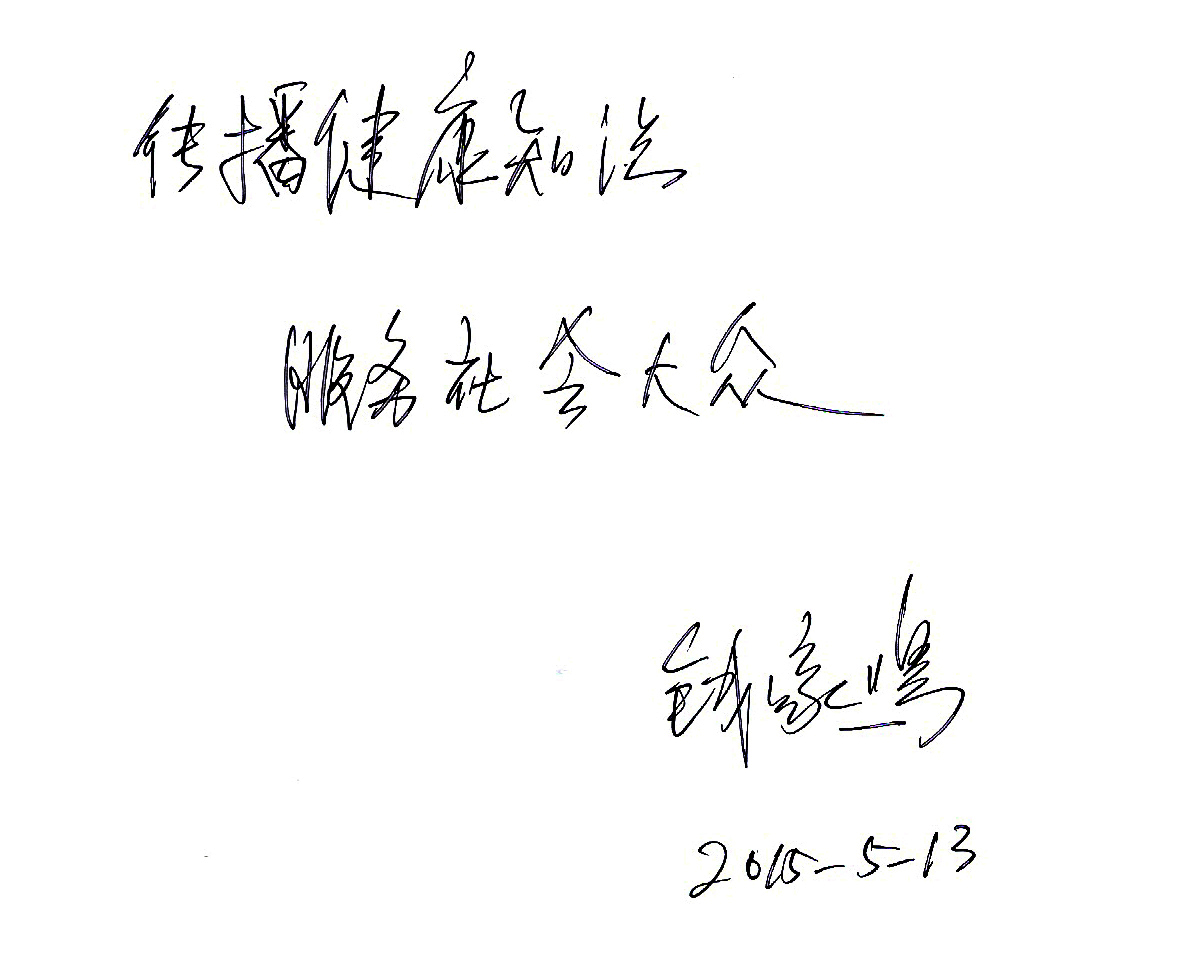 传播健康知识
服务社会大众
钱家鸣
2015-5-13